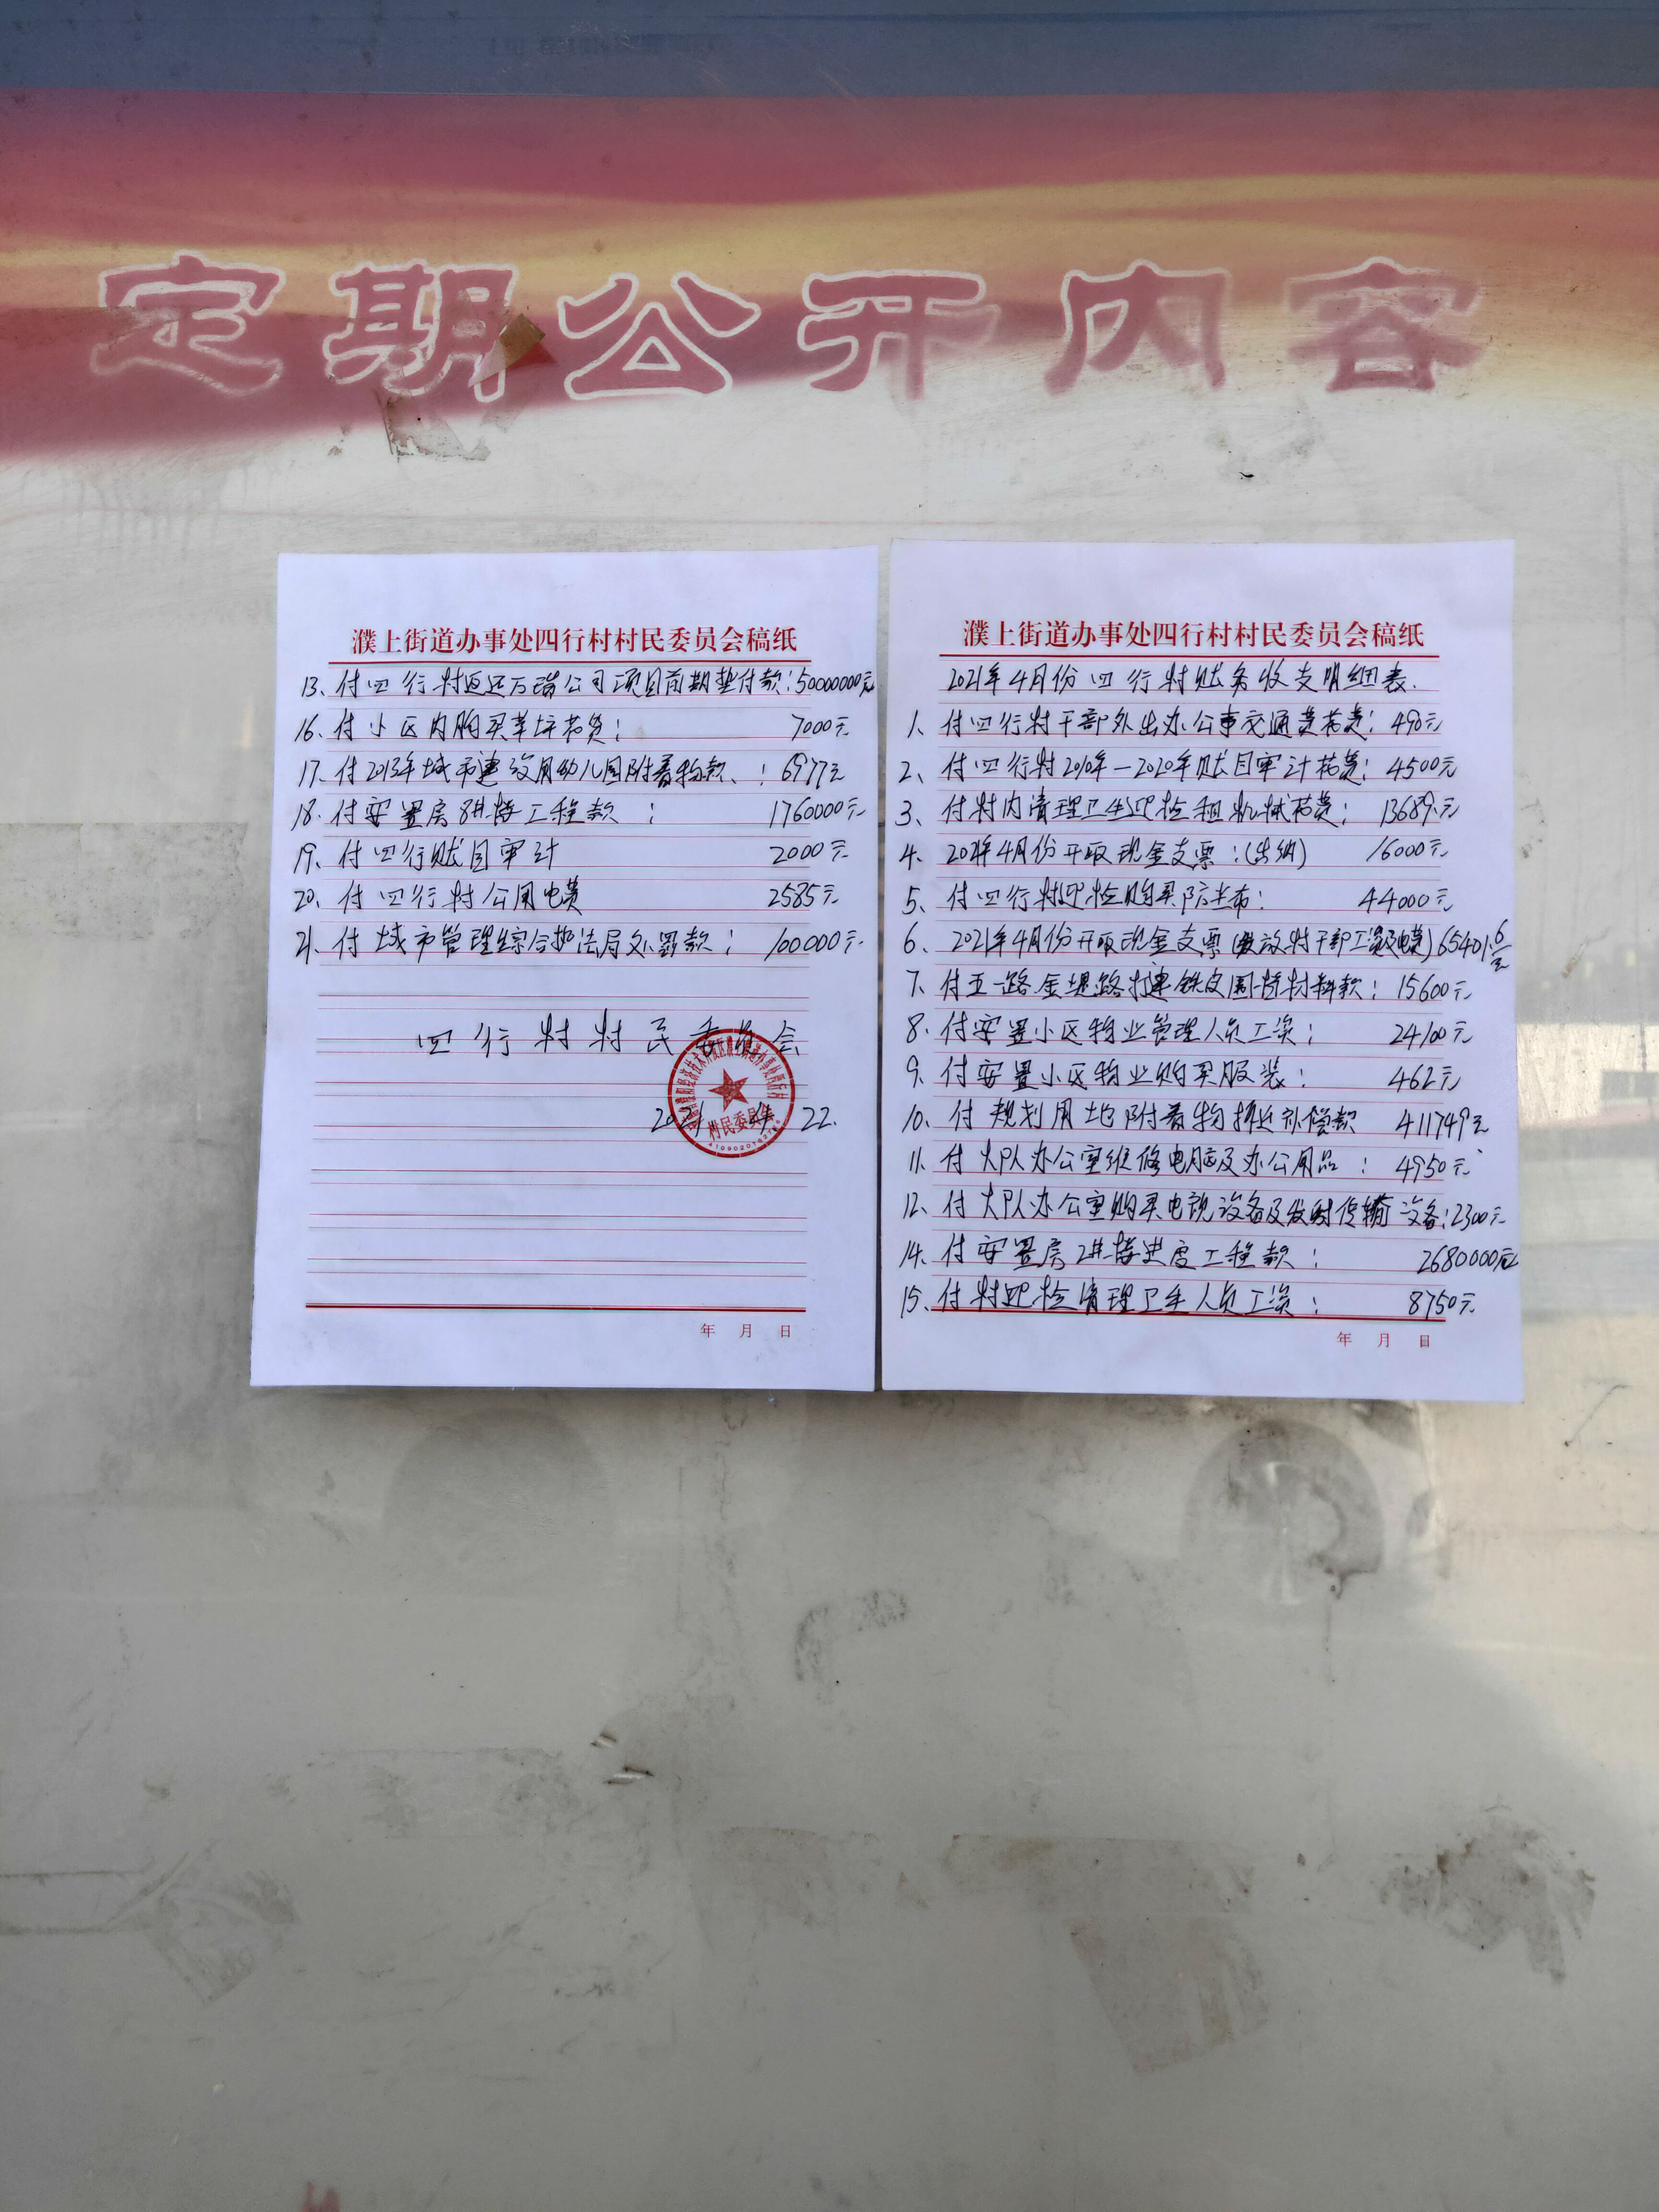 定期公开内容
濮上街道办事处四行村村民委员会稿纸
13、付四行村返还万瑞公司项目前期垫付款:50000000元
16、付小区内购买草坪花费: 7000元
17、付2013年城市建设用幼儿园附着物款、: 6977元
18、付安置房8#楼工程款: 1760000元
19、付四行账目审计 2000元
20、付四行村公用电费 2585元
21、付城市管理综合执法局处罚款: 100000元
四行村村民委员会
村民委员会
4109020162786
2021 4 22.
年 月 日
濮上街道办事处四行村村民委员会稿纸
2021年4月份四行村账务收支明细表.
1、付四行村干部外出办公事交通费花费: 490元
2、付四行村2010年—2020年账目审计花费: 4500元
3、付村内清理卫生迎检租机械花费: 13689元
4、2021年4月份开取现金支票:(出纳) 16000元
5、付四行村迎检购买防尘布: 44000元
6、2021年4月份开取现金支票(发放村干部工资及电费)65401.6元
7、付五一路金堤路打建铁皮围挡材料款: 15600元
8、付安置小区物业管理人员工资: 24100元
9、付安置小区物业购买服装: 462元
10、付规划用地附着物拆迁补偿款 411749元
11、付大队办公室维修电脑及办公用品: 4950元
12、付大队办公室购买电视设备及发射传输设备:2300元
14、付安置房2#楼进度工程款: 2680000元
15、付村迎检清理卫生人员工资: 8750元
年 月 日